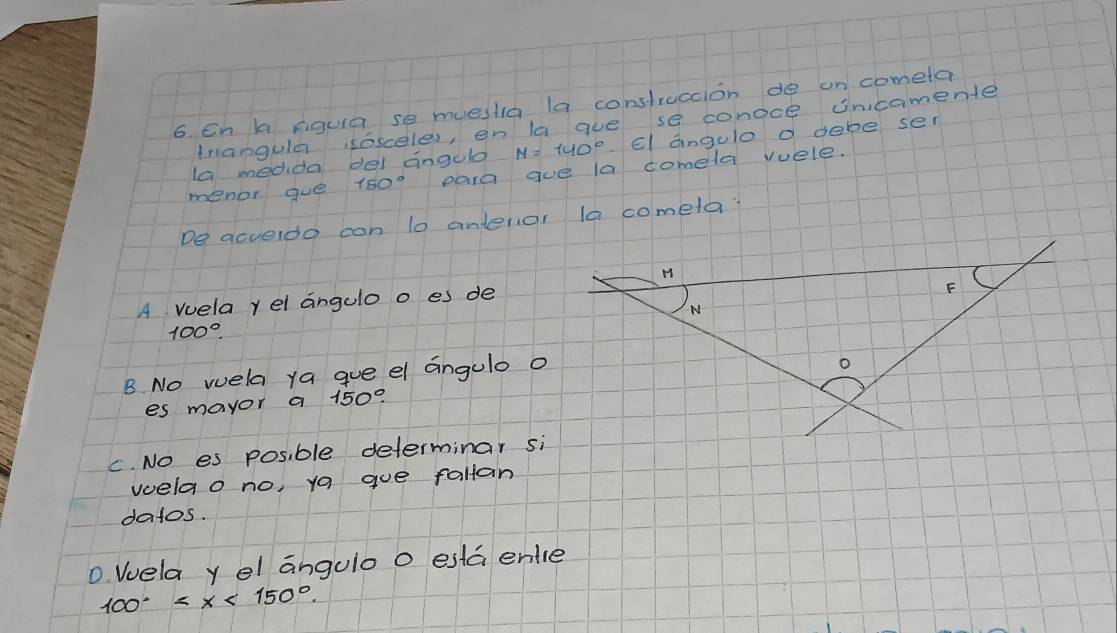 6. En la figura se muestra la construcción de un cometa
triangula isósceles, en la que se conoce únicamente
la medida del ángulo N = 140° El ángulo o debe ser
menor que 150° para que la cometa vuele.
De acuerdo con lo anterior la cometa:
A. vuela y el ángulo o es de
100°.
B. No vuela ya que el ángulo o
es mayor a 150°.
C. No es posible determinar si
vuela o no, ya que faltan
datos.
D. Vuela y el ángulo o está entre
100° < x < 150°.
M
N
F
O